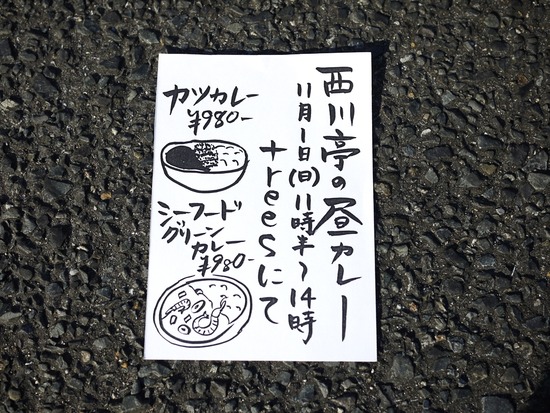 西川亭の昼カレー
11月1日(日)11時半〜14時
treesにて
カツカレー
¥980-
シーフード
グリーン
カレー
¥980-